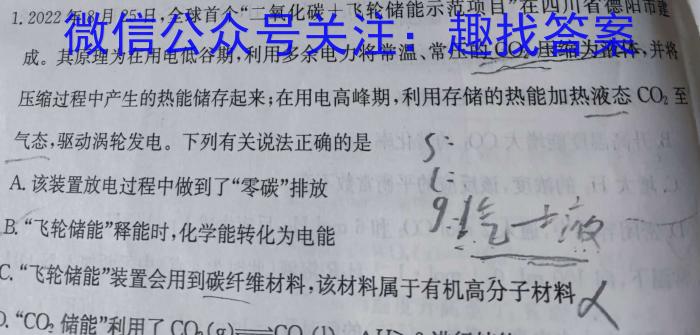 1. 2022年8月25日,全球首个“二氧化碳+飞轮储能示范项目”在四川省德阳市建
微信公众号关注:趣找答案
成。其原理为在用电低谷期,利用多余电力将常温、常压的CO₂压缩为液体,并将
压缩过程中产生的热能储存起来;在用电高峰期,利用存储的热能加热液态CO₂至
气态,驱动涡轮发电。下列有关说法正确的是
S:
l:
g:
气→液
A.该装置放电过程中做到了“零碳”排放
B.“飞轮储能”释能时,化学能转化为电能
C.“飞轮储能”装置会用到碳纤维材料,该材料属于有机高分子材料
D.“CO₂储能”利用了CO₂(g)⇌CO₂(l)